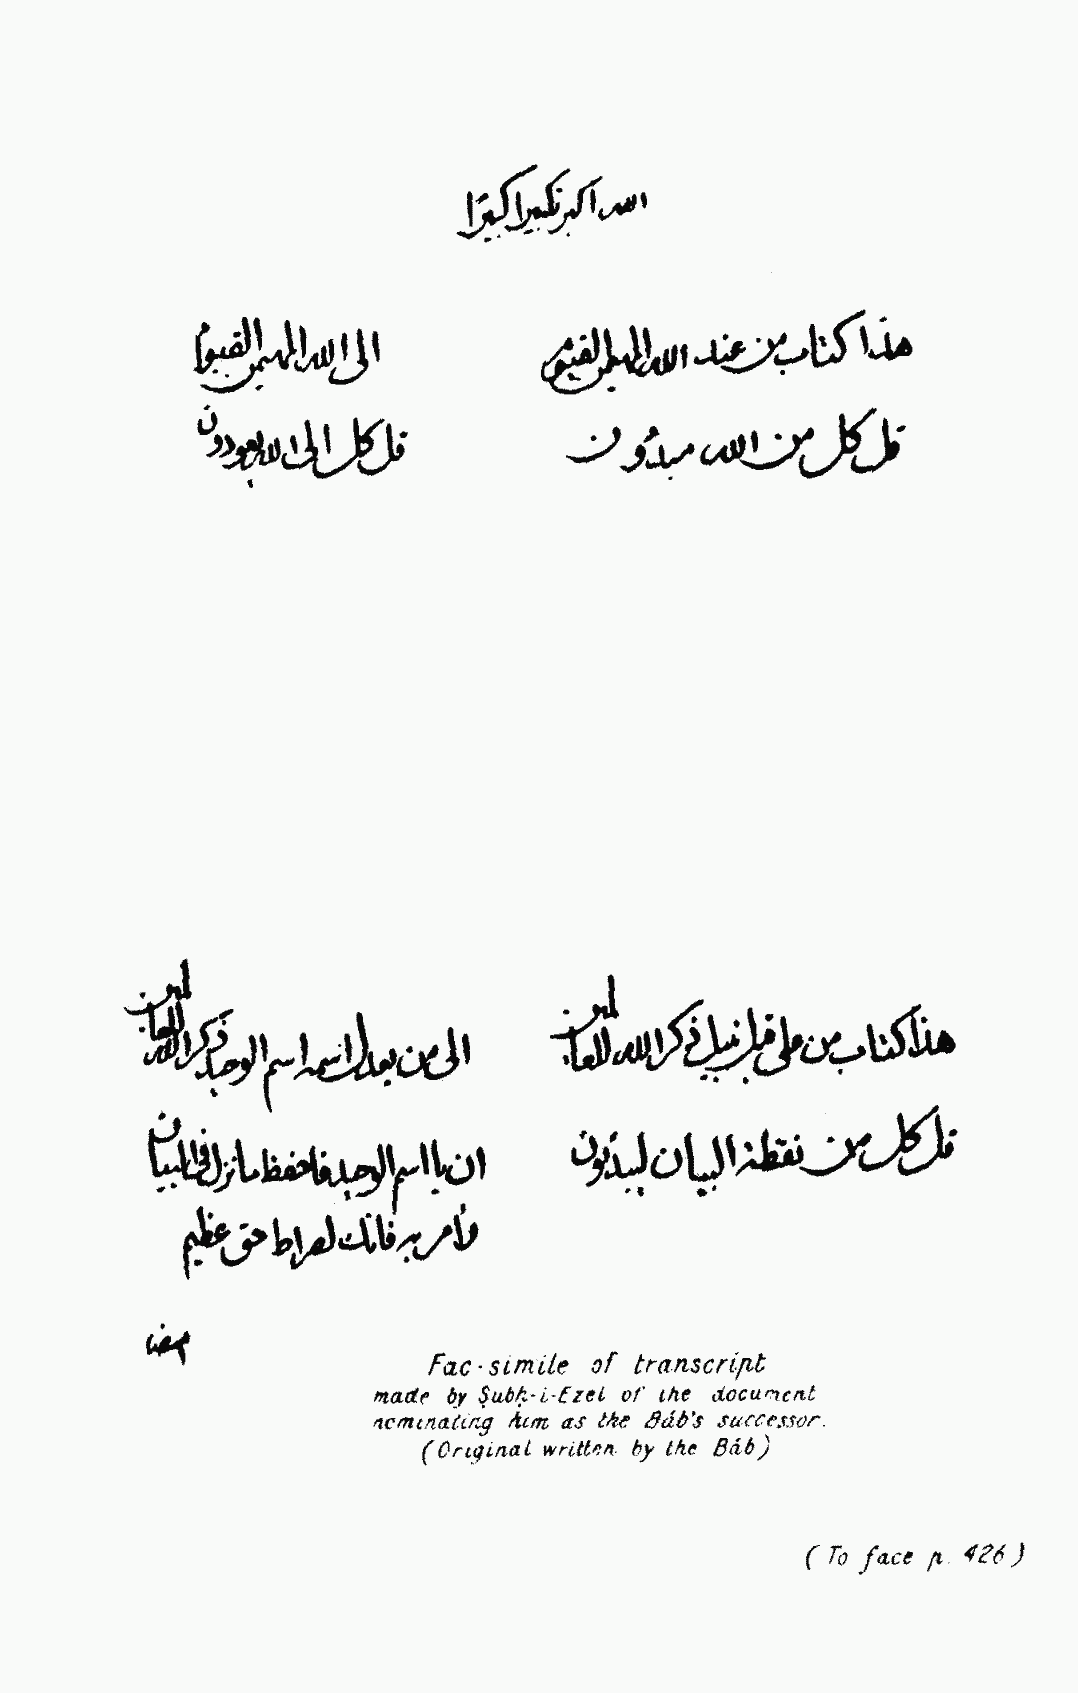 الله اكبر تكبيرا كبيرا
هذا كتاب من عند الله المهيمن القيوم الى الله المهيمن القيوم
قل كل من الله مبدؤن قل كل الى الله يعودون
هذا كتاب من على قبل نبيل ذكر الله للعالمين الى من يعدل اسمه اسم الوحيد ذكر الله للعالمين
قل كل من نقطة البيان ليبدؤن ان يا اسم الوحيد فاحفظ ما نزل فى البيان
وأمر به فانك لصراط حق عظيم
Fac-simile of transcript
made by Ṣubḥ-i-Ezel of the document
nominating him as the Báb's successor.
(Original written by the Báb)
(To face p. 426)